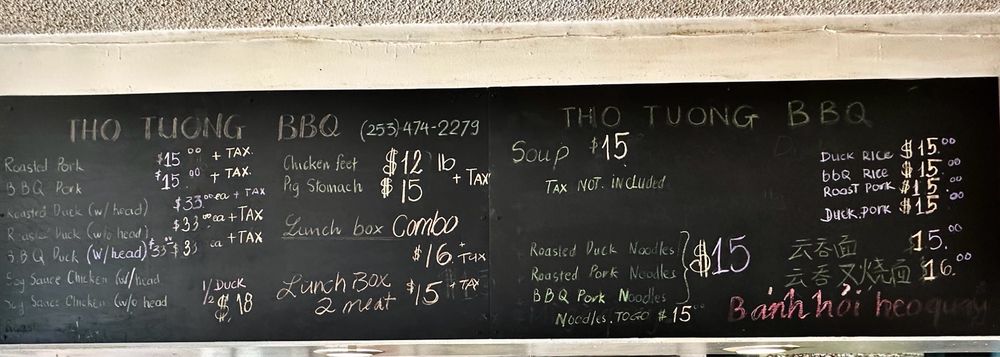 THO TUONG BBQ (253)474-2279
Roasted Pork $15.00 + TAX.
BBQ Pork $15.00 + TAX
Roasted Duck (w/head) $33.00ea + TAX
Roasted Duck (w/o head) $33.00ea + TAX
B.B.Q Duck (w/head) $33 ea + TAX
Soy Sauce Chicken (w/head
Soy Sauce Chicken (w/o head
1/2 DUCK
$18
Chicken feet $12 lb
Pig Stomach $15 + TAX
Lunch box Combo
$16.+ Tax
Lunch Box
2 meat $15 + TAX
THO TUONG BBQ
Soup $15
TAX NOT included
Roasted Duck Noodles
Roasted Pork Noodles $15
BBQ Pork Noodles
Noodles.TOGO $15.00
DUCK RICE $15.00
bbQ RICE $15.00
ROAST PORK $15.00
DUCK,PORK $15.00
云吞面 15.00
云吞叉烧面 16.00
Bánh hỏi heo quay